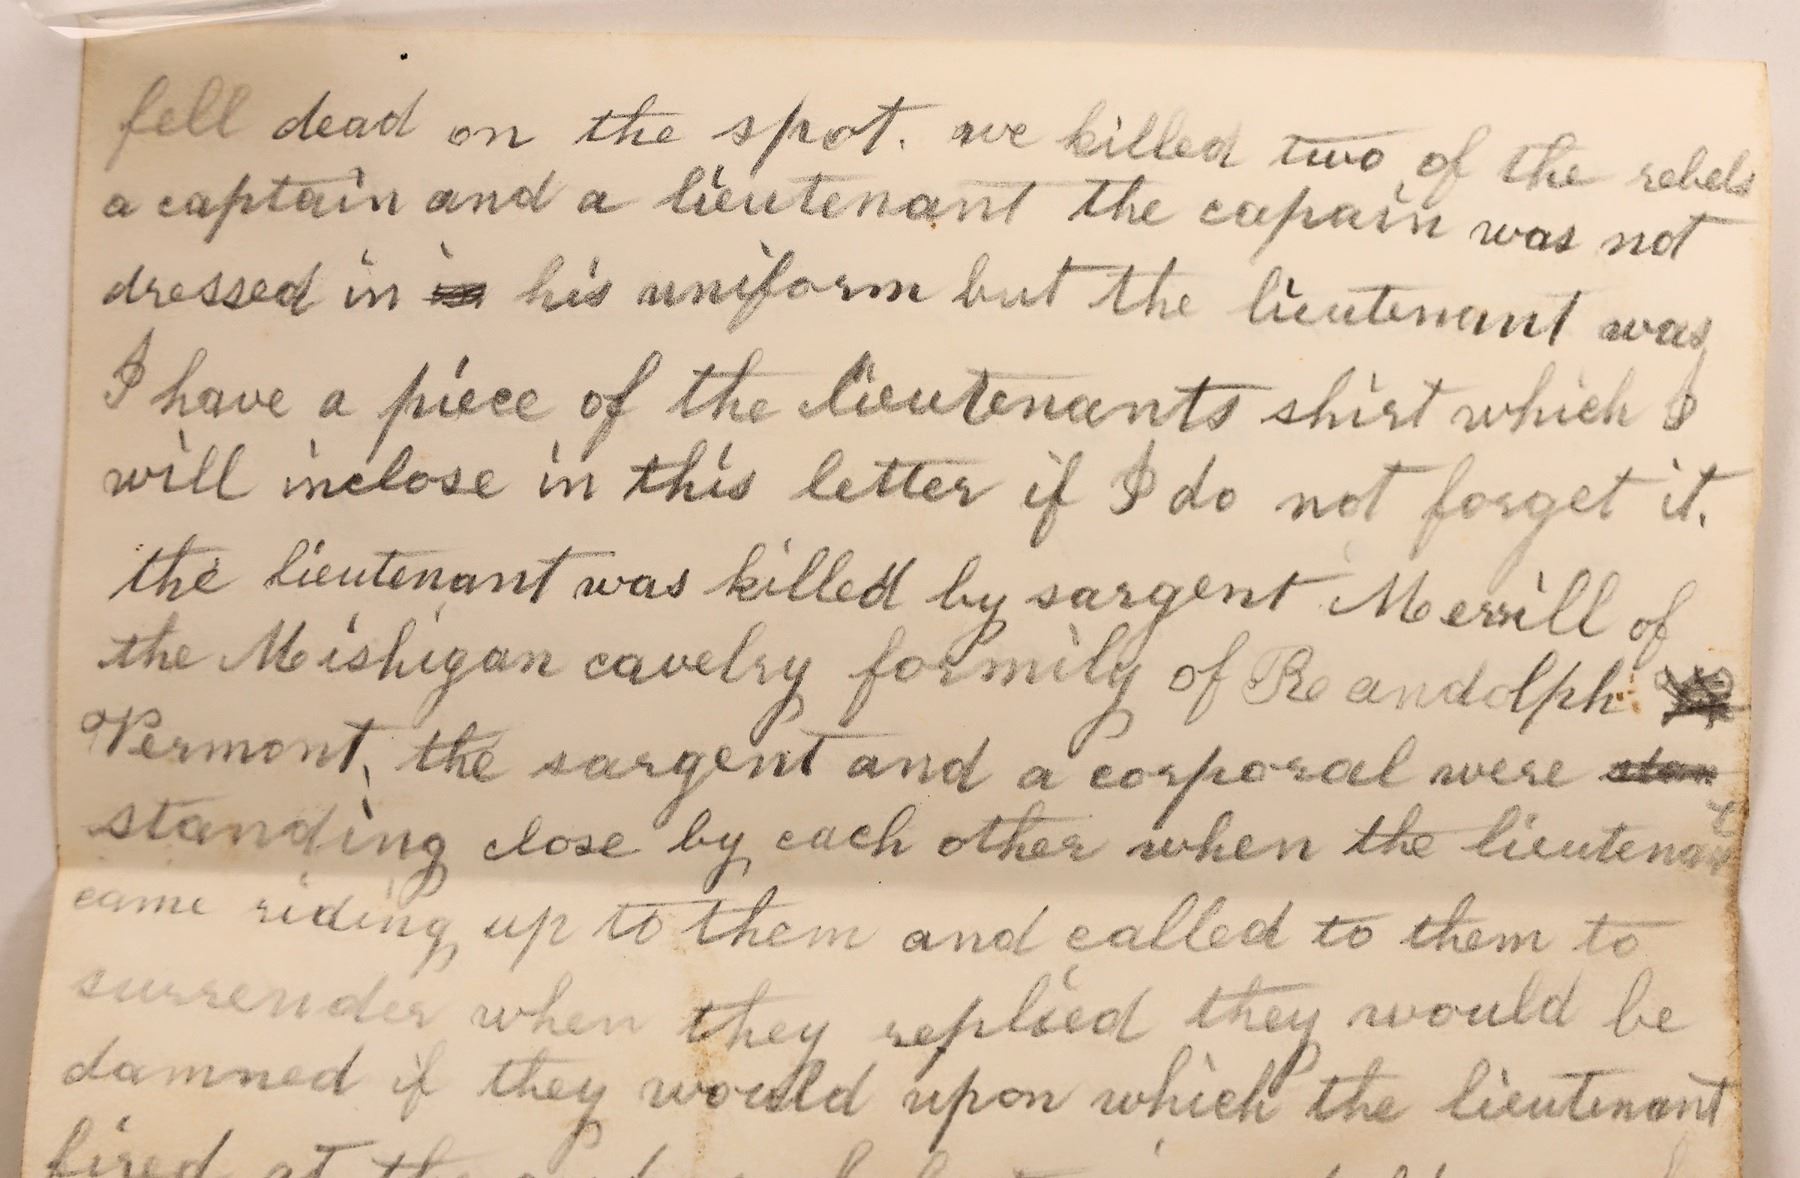 fell dead on the spot. we killed two of the rebels
a captain and a lieutenant the capain was not
dressed in his uniform but the lieutenant was
I have a piece of the lieutenants shirt which I
will inclose in this letter if I do not forget it.
the lieutenant was killed by sargent Merrill of
the Mishigan cavelry formily of Reandolph
Vermont, the sargent and a corporal were stan
standing close by each other when the lieutenant
came riding up to them and called to them to
surrender when they replied they would be
damned if they would upon which the lieutenant
fired at the